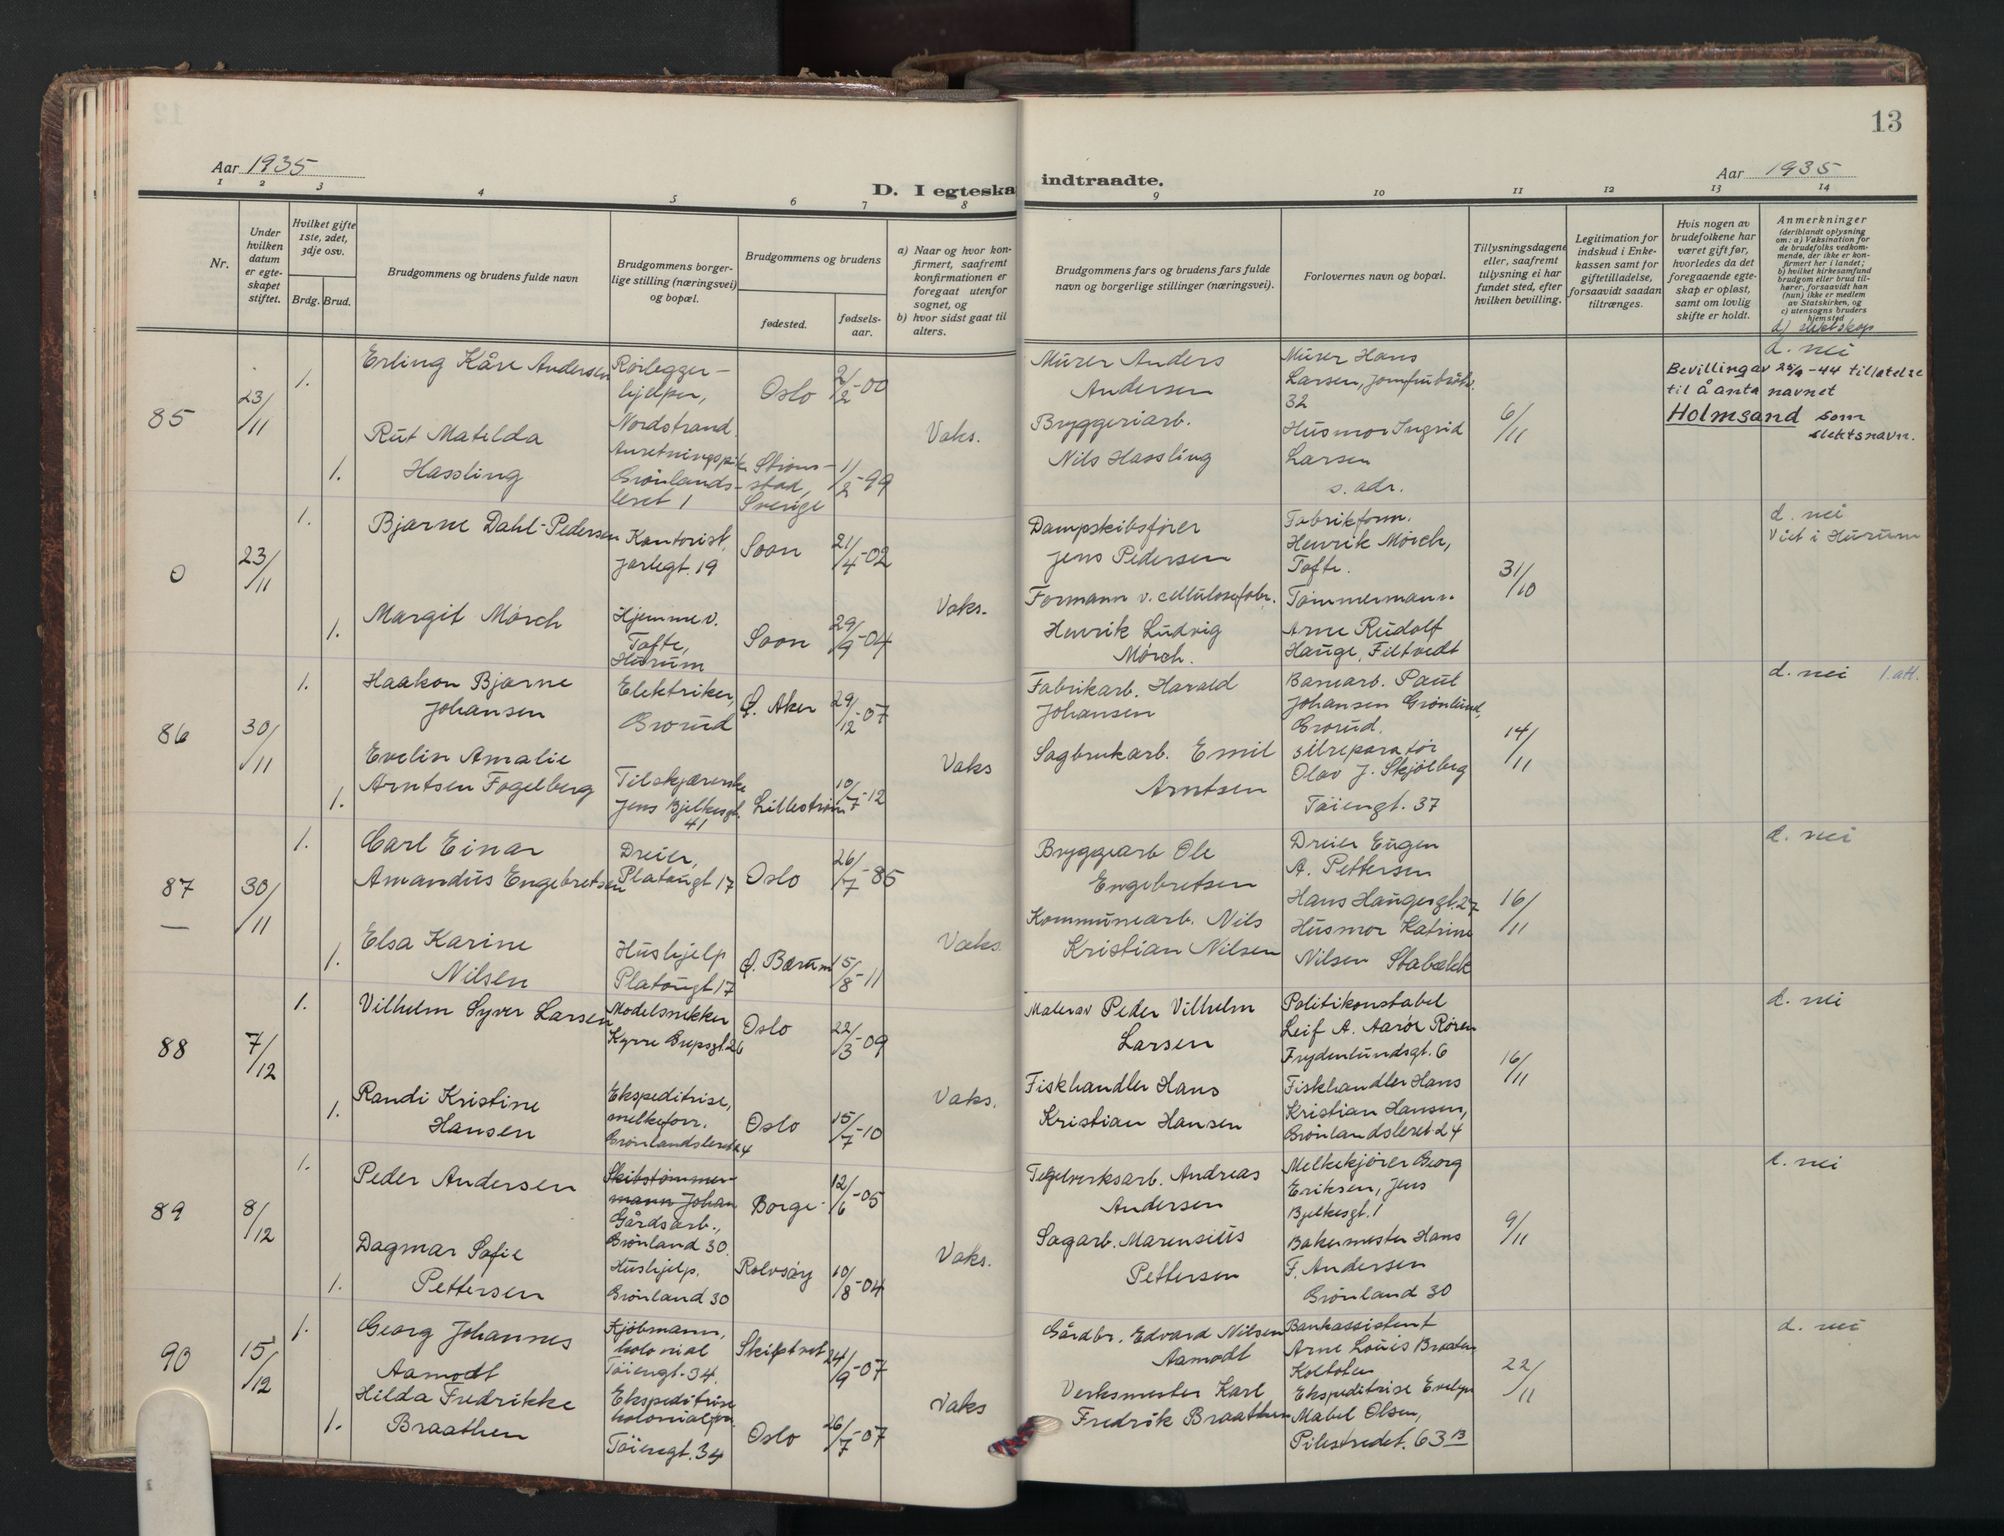 13
Aar 1935
D. I egteska
indtraadte.
Aar 1935
1 2 3 4 5 6 7 8 9 10 11 12 13 14
Nr.
Under hvilken datum er egteskapet stiftet.
Hvilket gifte 1ste, 2det, 3dje osv.
Brdg. Brud.
Brudgommens og brudens fulde navn
Brudgommens borgerlige stilling (næringsvei) og bopæl.
Brudgommens og brudens
fødested.
fødselsaar.
a) Naar og hvor konfirmert, saafremt konfirmationen er foregaat utenfor sognet, og
b) hvor sidst gaat til alters.
Brudgommens fars og brudens fars fulde navn og borgerlige stillinger (næringsvei).
Forlovernes navn og bopæl.
Tillysningsdagene eller, saafremt tillysning ei har fundet sted, efter hvilken bevilling.
Legitimation for indskud i Enkekassen samt for giftetilladelse, forsaavidt saadan tiltrænges.
Hvis nogen av brudefolkene har været gift før, hvorledes da det foregaaende egteskap er opløst, samt om lovlig skifte er holdt.
Anmerkninger
(deriblandt oplysning om: a) Vaksination for de brudefolks vedkommende, der ikke er konfirmert her i landet; b) hvilket kirkesamfund brudgom eller brud tilhører, forsaavidt han (hun) ikke er medlem av Statskirken, og c) utensogns bruders hjemsted
d) slektskap
85
23/11
1.
Erling Kåre Andersen
Rørlegger-
hjelper,
Nordstrand.
Oslo
2/2-00
Murer Anders
Andersen
Murer Hans
Larsen, Jomfrubråt.
32
6/11
d. nei
Bevilling av 25/9-44 tillatelse
til å anta navnet
Holmsand som
slektsnavn.
1.
Rut Matilda
Hassling
Anretningspike
Grønlands-
leret 1
Strøm-
stad,
Sverige
11/2-99
Vaks.
Bryggeriarb.
Nils Hassling
Husmor Ingrid
Larsen
s. adr.
0
23/11
1.
Bjarne Dahl-Pedersen
Kontorist,
Jarlegt. 19
Soon
21/4-02
Dampskibsfører
Jens Pedersen
Fabrikform.
Henrik Mörch,
Tofte.
31/10
d. nei
Viet i Hurum
1.
Margit Mörch
Hjemmev.
Tofte,
Hurum
Soon
29/9-04
Vaks.
Formann v. cellulosefabr.
Henrik Ludvig
Mörch.
Tømmermann
Arne Rudolf
Hauge, Filtvedt
86
30/11
1.
Haakon Bjarne
Johansen
Elektriker,
Grorud
Ø. Aker
29/12-07
Fabrikarb. Harald
Johansen
Banearb. Paul
Johansen Grönlund,
Grorud.
14/11
d. nei
1. att.
1.
Evelin Amalie
Arntsen Fogelberg
Tilskjærerske
Jens Bjelkesgt.
41
Lillestrøm
10/7-12
Vaks
Sagbrukarb. Emil
Arntsen
Olav J. Skjölberg
Töiengt. 37
87
—
30/11
1.
Carl Einar
Amandus Engebretsen
Dreier,
Platougt 17
Oslo
26/7-85
Bryggearb Ole
Engebretsen
Dreier Eugen
A. Pettersen
Hans Haugesgt. 27
16/11
d. nei
1.
Elsa Karine
Nilsen
Hushjelp
Platougt 17
Ø. Bærum
15/8-11
Vaks.
Kommunearb. Nils
Kristian Nilsen
Husmor Katrine
Nilsen Stabækk
88
7/12
1.
Vilhelm Syver Larsen
Modelsnekker
Kyrre Grepsgt. 26
Oslo
22/3-09
Peder Vilhelm
Larsen
Politikonstabel
Leif A. Aarör Rören
Frydenlundsgt. 6
16/11
d. nei
1.
Randi Kristine
Hansen
Ekspeditrise,
melkeforr.
Grønlandsleret 24
Oslo
15/7-10
Vaks.
Fiskhandler Hans
Kristian Hansen
Fiskhandler Hans
Kristian Hansen,
Grønlandsleret 24
89
8/12
1.
Peder Andersen
Skibstømmer-
mann Johan
Gårdsarb.,
Grønland 30.
Borge
12/6-05
Teglverksarb. Andreas
Andersen
Melkekjører Georg
Eriksen, Jens
Bjelkesgt. 1
9/11
d. nei
1.
Dagmar Sofie
Pettersen
Hushjelp.
Grønland 30
Rolvsøy
10/8-04
Vaks.
Sagarb. Marensius
Pettersen
Bakermester Hans
F. Andersen
Grønland 30
90
15/12
1.
Georg Johannes
Aamodt
Kjøbmann,
kolonial
Töiengt. 34.
Skiptvet
24/9-07
Gårdbr. Edvard Nilsen
Aamodt
Bankassistent
Arne Louis Braaten
Kolbotn
22/11
d. nei
1.
Hilda Fredrikke
Braathen
Ekspeditrise
kolonialforr.
Töiengt. 34
Oslo
26/7-07
Vaks
Verksmester Karl
Fredrik Braathen
Ekspeditrise Evelyn
Mabel Olsen,
Pilestredet. 63 B